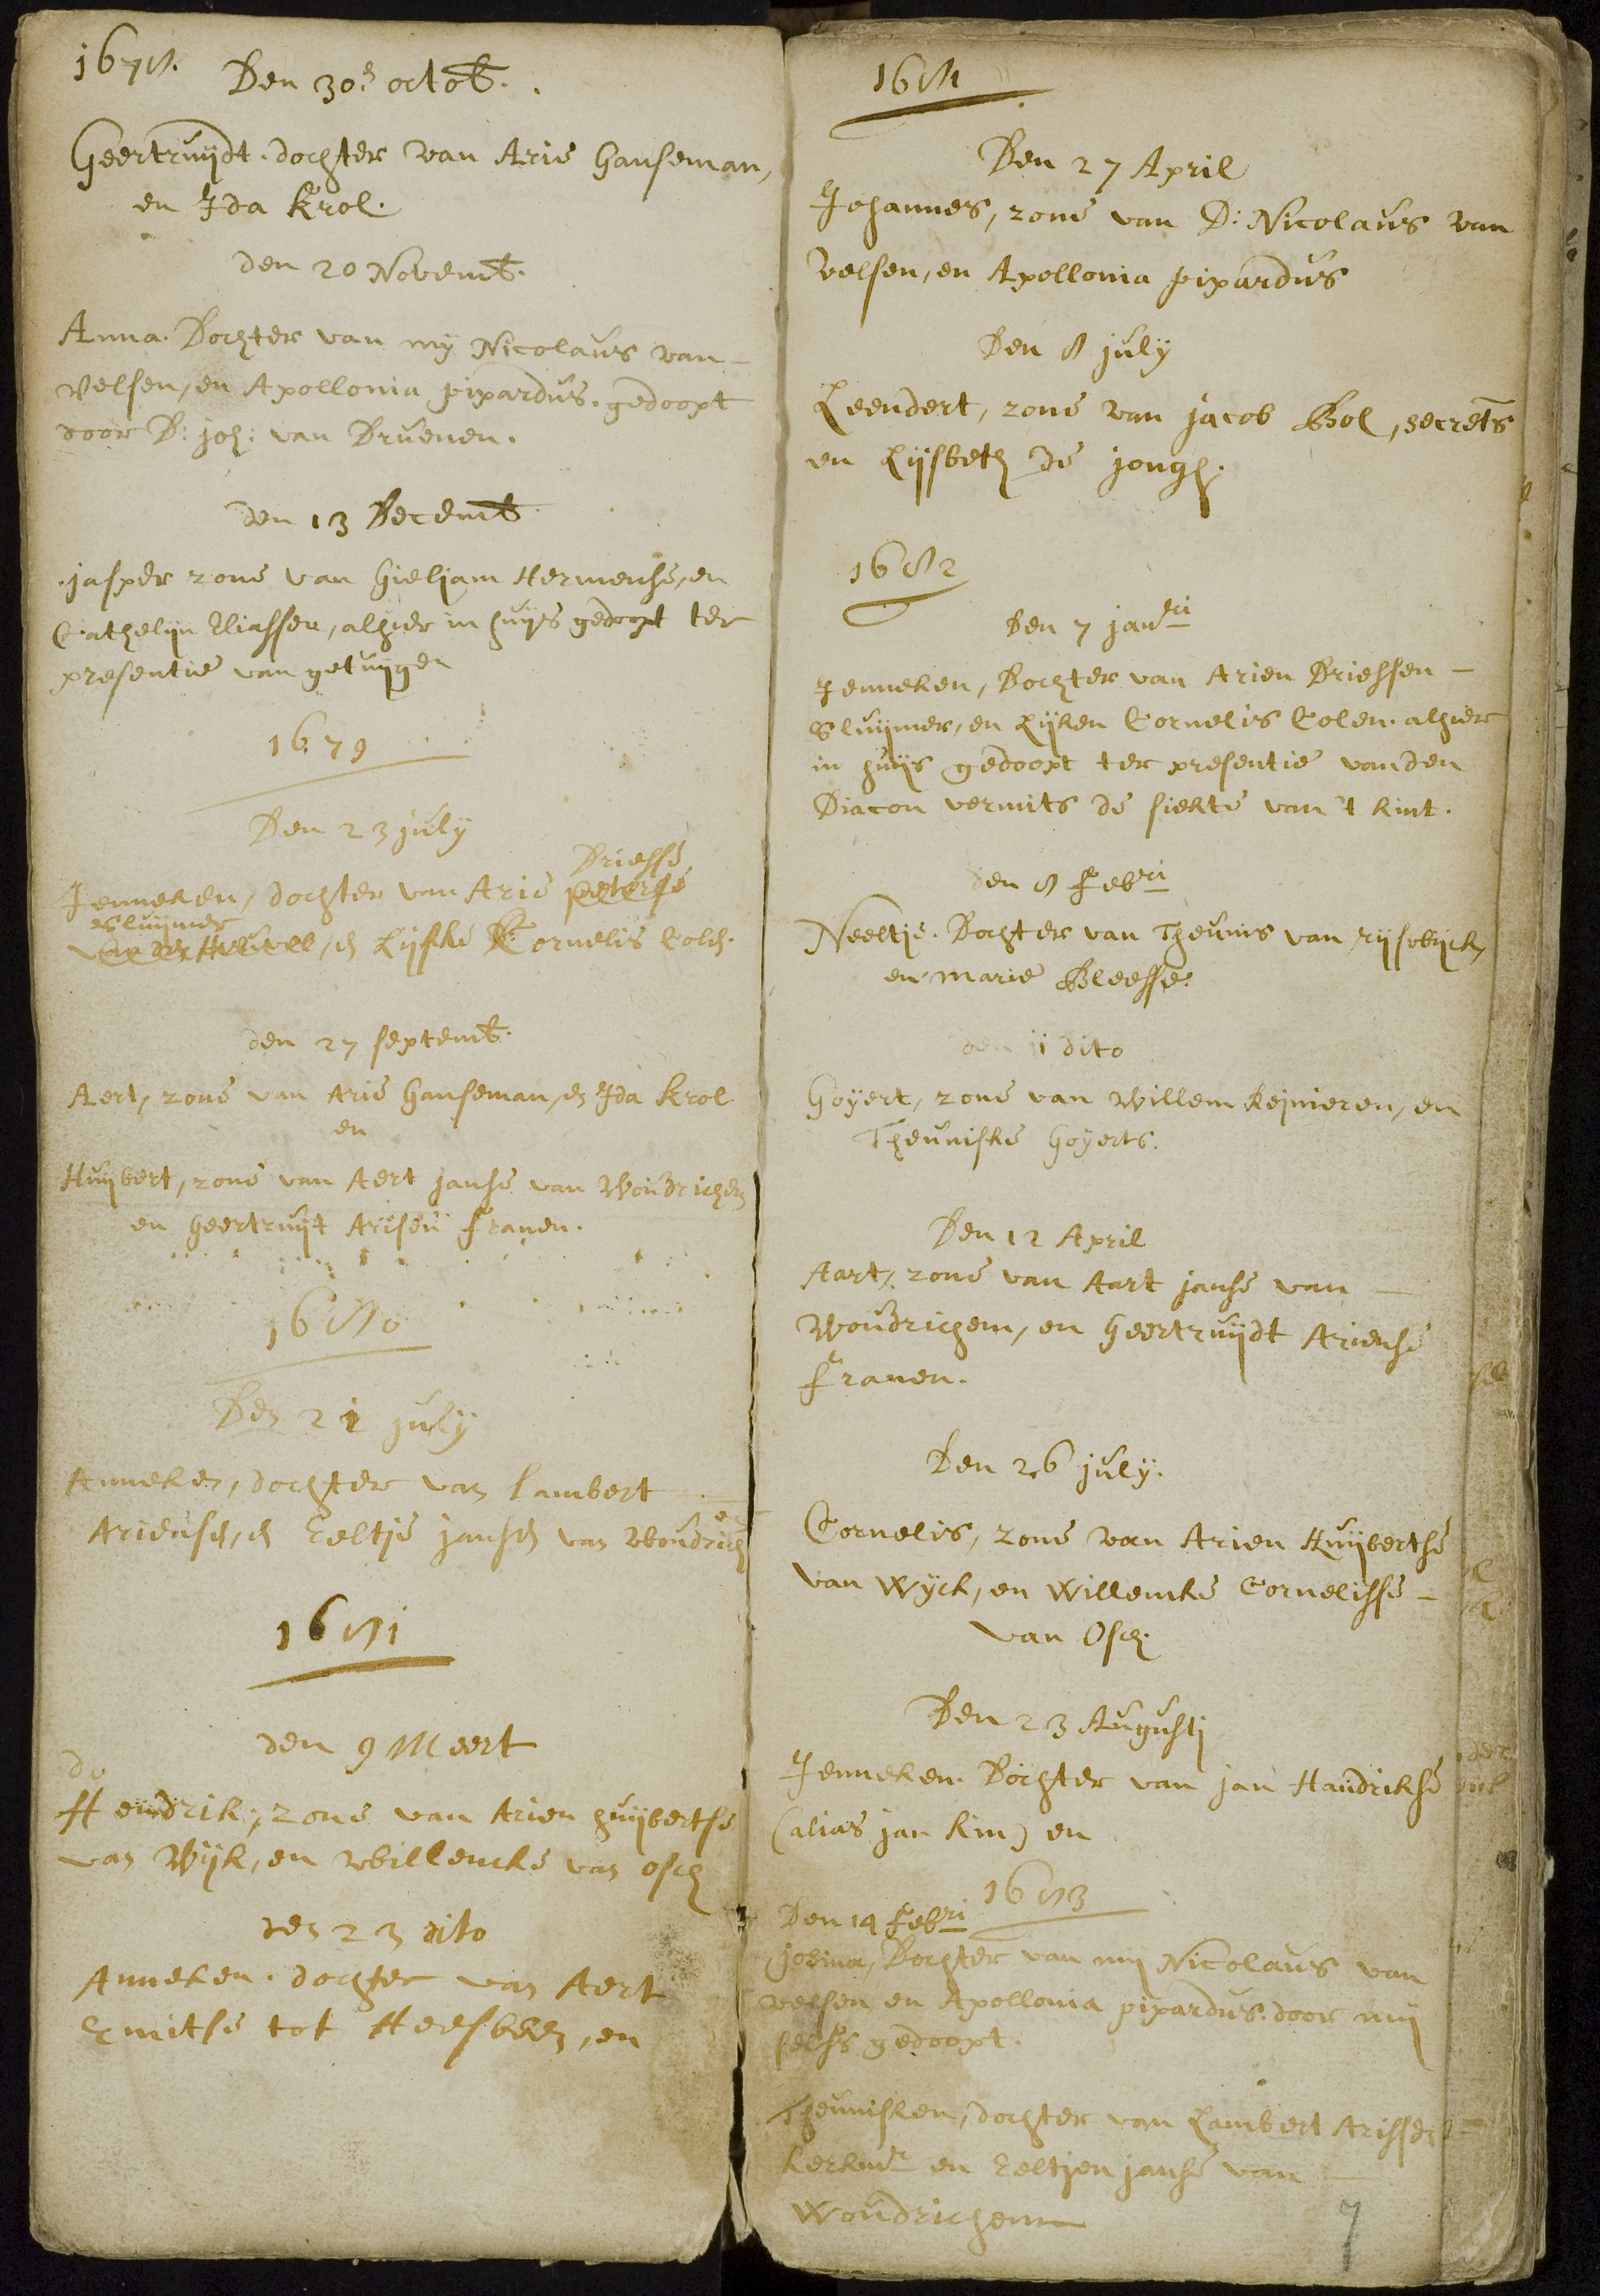 1678.
Den 30e octob.
Geertruijdt. dochter van Arie Hanseman,
en Ida Krol.
den 20 Novemb.
Anna. Dochter van mij Nicolaus van
Velsen, en Apollonia pixardus. gedoopt
door D: joh: van Druenen.
den 13 Decemb.
jasper zone van Gieljam Hermense, en
Cathelijn Eliassen, alhier in huijs gedoopt ter
presentie van getuijgen
1679
Den 23 july
Driesse
Jenneken, dochter van Arie peterse
Sluijmer
van den Heuvel, en Lijske Cornelis Colen.
den 27 septemb.
Aert, zone van Arie Hanseman, en Ida Krol
en
Huijbert, zone van Aert janse van Woudrichem
en Geertruijt Arisen franen.
1680
Den 21 july
Anneken, dochter van Lambert
Ariensen, en Eeltje jansen van Woudrichem
1681
den 9 Meert
do
Hendrik, zone van Arien huijbertse
van Wijk, en Willemcke van Osch
den 23 dito
Anneken. dochter van Aert
Smitse tot Heesbeen, en
1681
Den 27 April
Johannes, zone van D: Nicolaus van
Velsen, en Apollonia pixardus
Den 8 july
Leendert, zone van jacob Bol, secrets
en Lijsbeth de jongh.
1682
Den 7 janri
Jenneken, Dochter van Arien Driessen
Sluijmer, en Lijken Cornelis Colen. alhier
in huijs gedoopt ter presentie vanden
Diacon vermits de siekte van 't kint.
den 8 febri
Neeltje. Dochter van Theunis van rijswijck,
en Marie Bleesse.
den 11 dito
Goyert, zone van Willem Reijnieren, en
Theuniske Goyerts.
Den 12 April
Aart, zone van Aart janse van
Woudrichem, en Geertruijdt Ariense
franen.
Den 26 july.
Cornelis, zone van Arien Huijbertse
van Wyck, en Willemcke Cornelisse
van Osch.
Den 23 Augusti
Jenneken. Dochter van jan Handrikse
(alias jan Kin) en
1683
Den 14 febri
jobina, Dochter van mij Nicolaus van
velsen en Apollonia pixardus. door mij
selfs gedoopt.
Theunisken, dochter van Lambert Arissen
kerkmr en Eeltjen janse van
Woudrichem
7